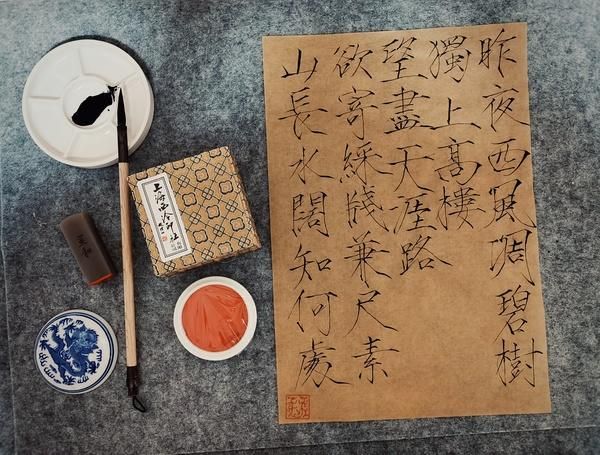 昨夜西風凋碧樹
獨上高樓
望盡天涯路
欲寄綵牋兼尺素
山長水闊知何處
上海西泠印社